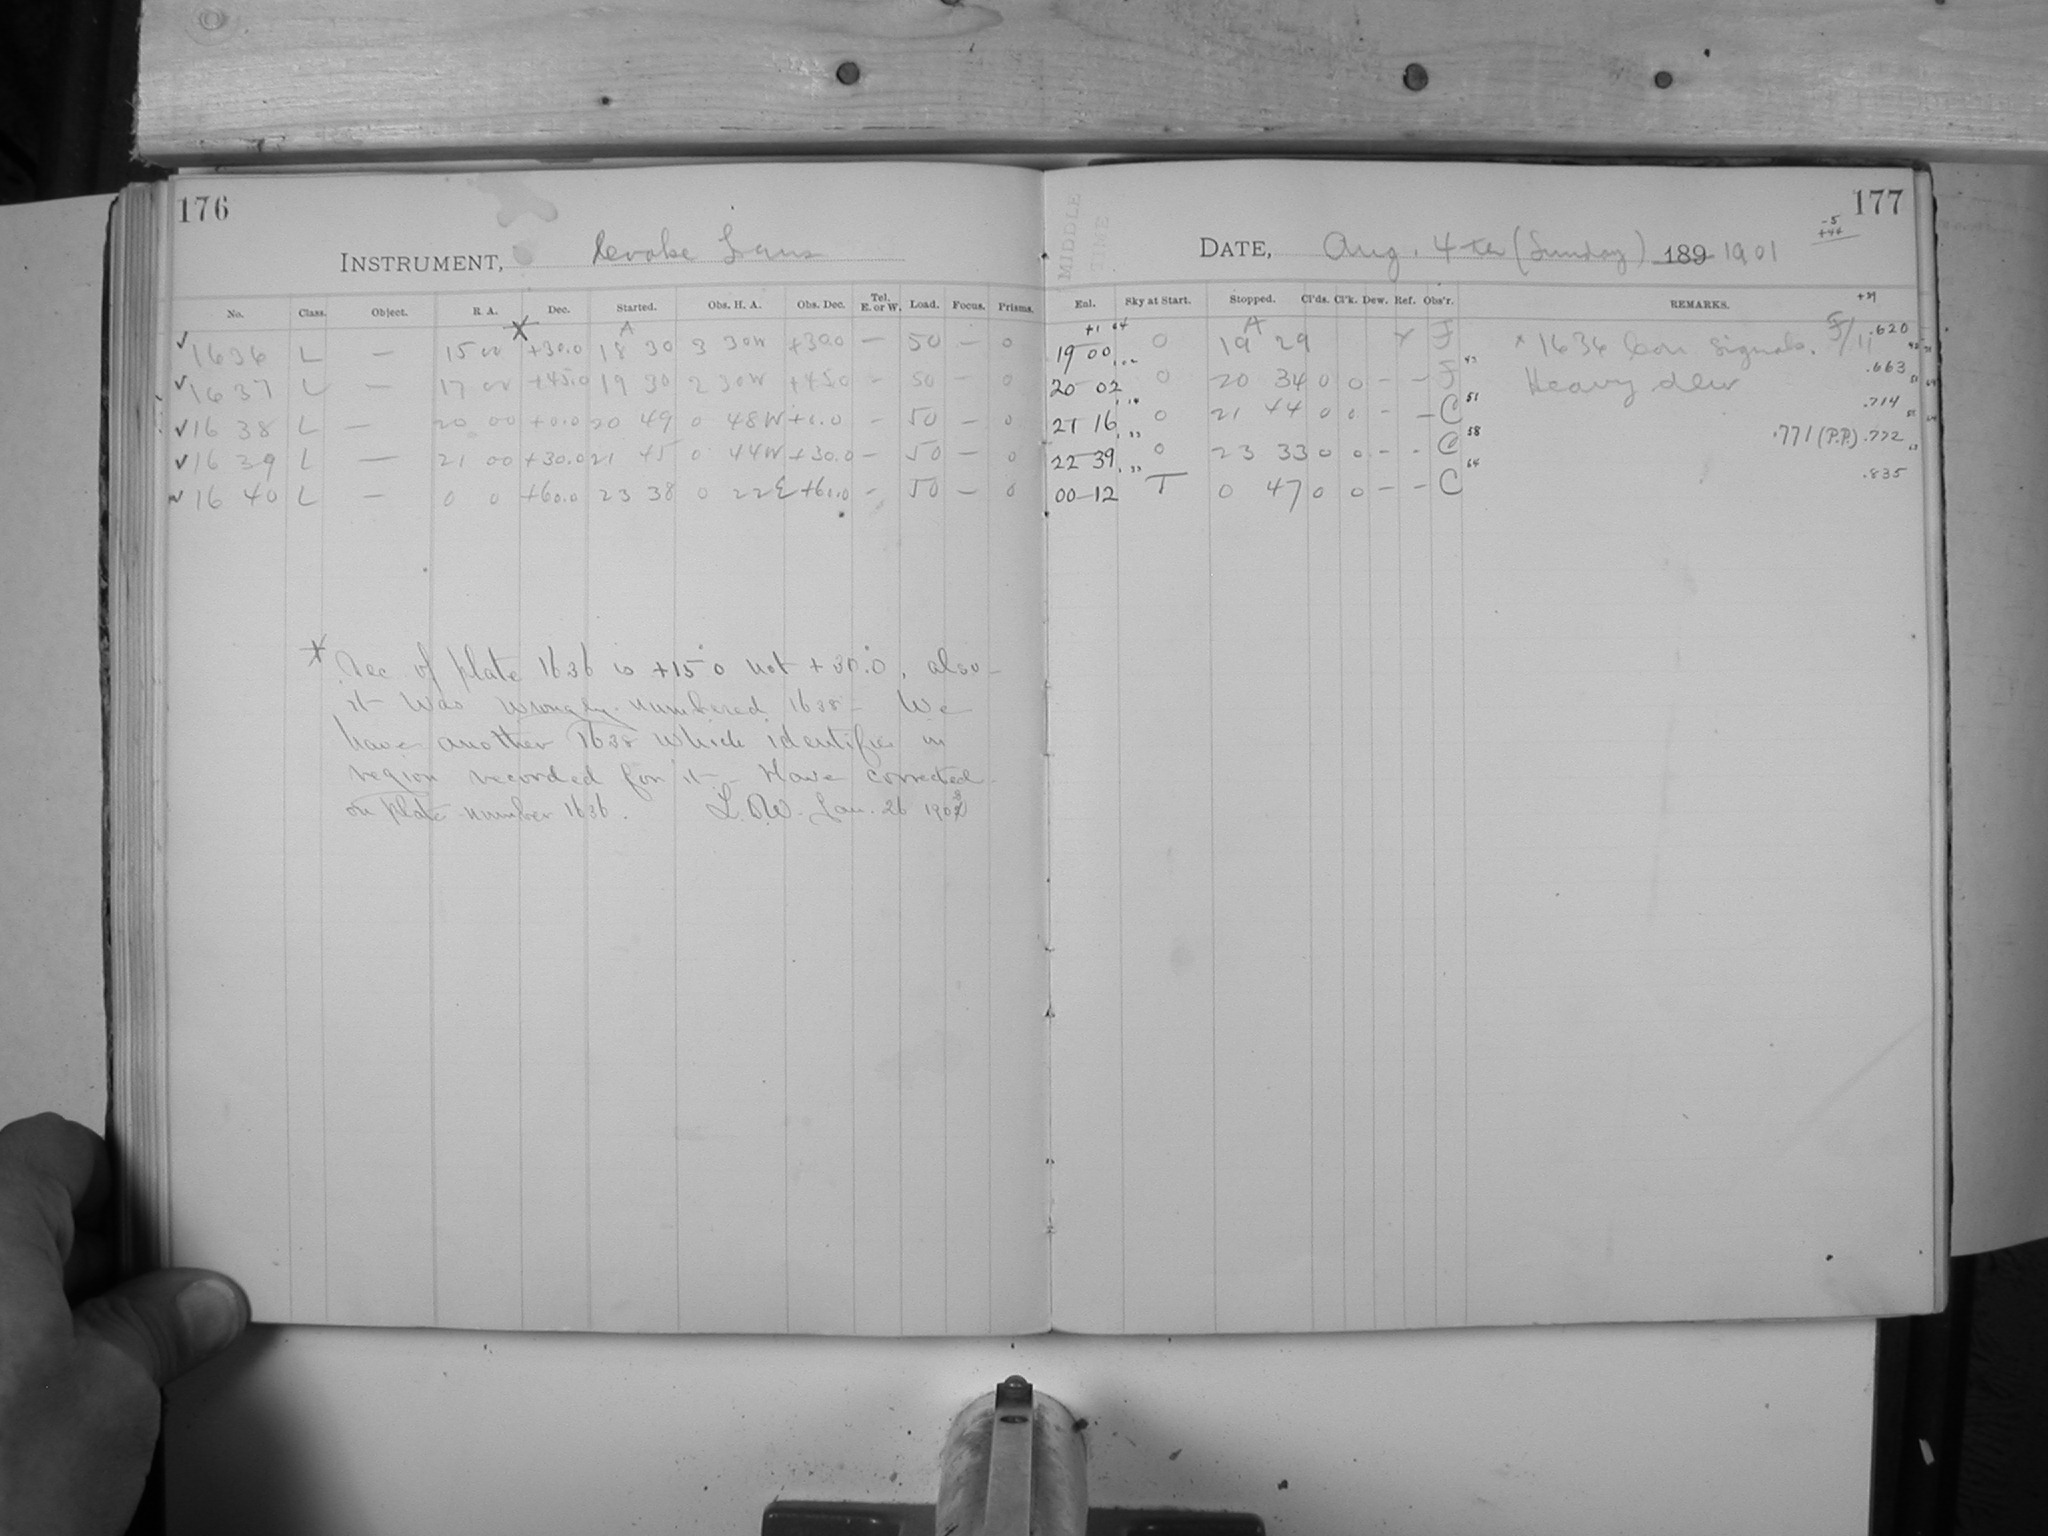 176
INSTRUMENT, Cooke Lens
No. Class. Object. R. A. Dec. Started. Obs. H. A. Obs. Dec. Tel. E. or W. Load. Focus. Prisms.
✓ 1636 L — 15 00 +30.0 18 30 3 30W +30.0 — 50 — 0
✓ 1637 L — 17 00 +45.0 19 30 2 30W +45.0 — 50 — 0
✓ 1638 L — 20 00 +0.0 20 49 0 48W +0.0 — 50 — 0
✓ 1639 L — 21 00 +30.0 21 45 0 44W +30.0 — 50 — 0
1640 L — 0 0 +60.0 23 38 0 22E +60.0 — 50 — 0
* Dec of plate 1636 is +15°0 not +30°.0, also
it was wrongly numbered 1638 – We
have another 1638 which identifies in
region recorded for it – Have corrected
on plate number 1636. L.D.W. Jan. 26 1903
MIDDLE TIME
177
DATE, Aug. 4th (Sunday) 189 1901
-5
+44
Exl. Sky at Start. Stopped. Cl'ds. Cl'k. Dew. Ref. Obs'r. REMARKS.
+39
19 00 0 19 29 F × 1636 Con Signals. F/11 .620
20 02 0 20 34 0 0 – – F 43 Heavy dew .663
21 16 0 21 44 0 0 – – C 51 .714
22 39 0 23 33 0 0 – – C 58 .771 (P.P.) .772
00 12 T 0 47 0 0 – – C 64 .835